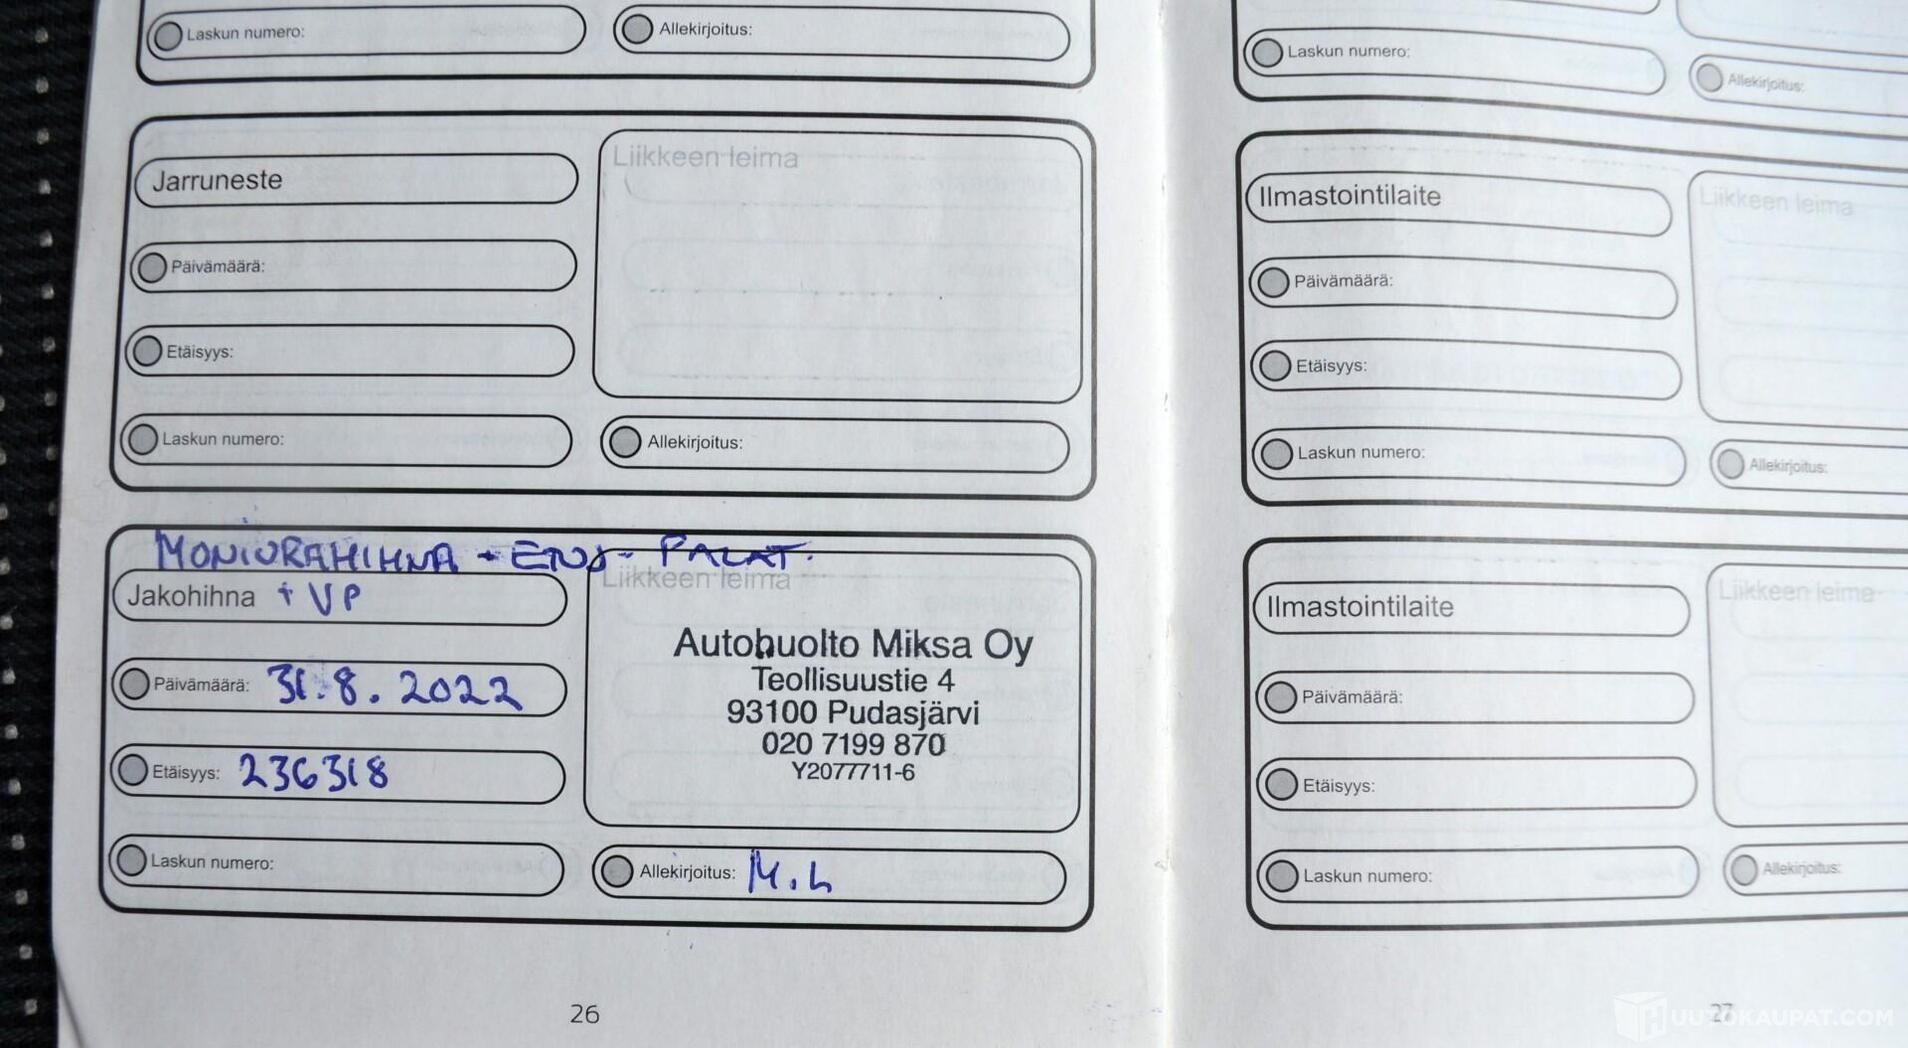 Laskun numero:
Allekirjoitus:
Jarruneste
Liikkeen leima
Päivämäärä:
Etäisyys:
Laskun numero:
Allekirjoitus:
MONIURAHIHNA + ETU - PALAT.
Jakohihna + VP
Liikkeen leima
Päivämäärä: 31.8.2022
Etäisyys: 236318
Autohuolto Miksa Oy
Teollisuustie 4
93100 Pudasjärvi
020 7199 870
Y2077711-6
Laskun numero:
Allekirjoitus: M.L
26
Laskun numero:
Allekirjoitus:
Ilmastointilaite
Liikkeen leima
Päivämäärä:
Etäisyys:
Laskun numero:
Allekirjoitus:
Ilmastointilaite
Liikkeen leima
Päivämäärä:
Etäisyys:
Laskun numero:
Allekirjoitus:
27
HUUTOKAUPAT.COM